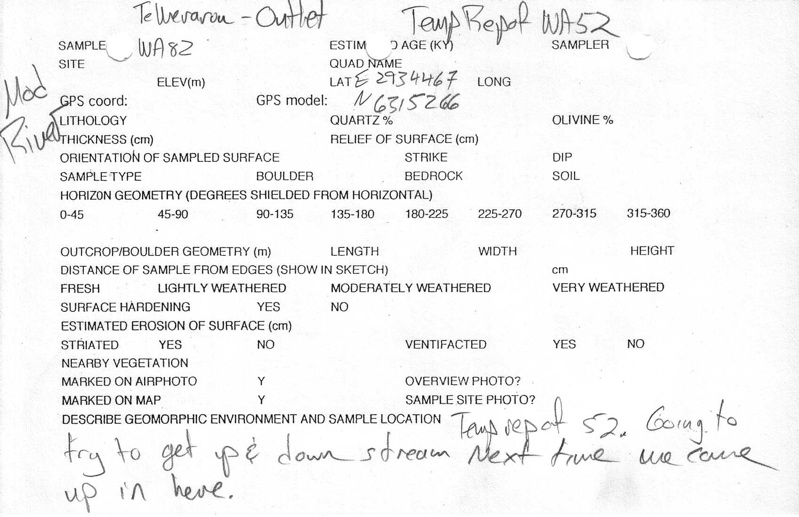 Outlet Temp Repat WA52
SAMPLE WA82 ESTIM D AGE (KY) SAMPLER
SITE QUAD NAME
ELEV(m) LAT E 2934467 LONG
GPS coord: GPS model: N 6315266
Mad River
LITHOLOGY QUARTZ % OLIVINE %
THICKNESS (cm) RELIEF OF SURFACE (cm)
ORIENTATION OF SAMPLED SURFACE STRIKE DIP
SAMPLE TYPE BOULDER BEDROCK SOIL
HORIZ0N GEOMETRY (DEGREES SHIELDED FROM HORIZONTAL)
0-45 45-90 90-135 135-180 180-225 225-270 270-315 315-360
OUTCROP/BOULDER GEOMETRY (m) LENGTH WIDTH HEIGHT
DISTANCE OF SAMPLE FROM EDGES (SHOW IN SKETCH) cm
FRESH LIGHTLY WEATHERED MODERATELY WEATHERED VERY WEATHERED
SURFACE HARDENING YES NO
ESTIMATED EROSION OF SURFACE (cm)
STRIATED YES NO VENTIFACTED YES NO
NEARBY VEGETATION
MARKED ON AIRPHOTO Y OVERVIEW PHOTO?
MARKED ON MAP Y SAMPLE SITE PHOTO?
DESCRIBE GEOMORPHIC ENVIRONMENT AND SAMPLE LOCATION Temp repat 52. Going to
try to get up & down stream Next time we came
up in here.